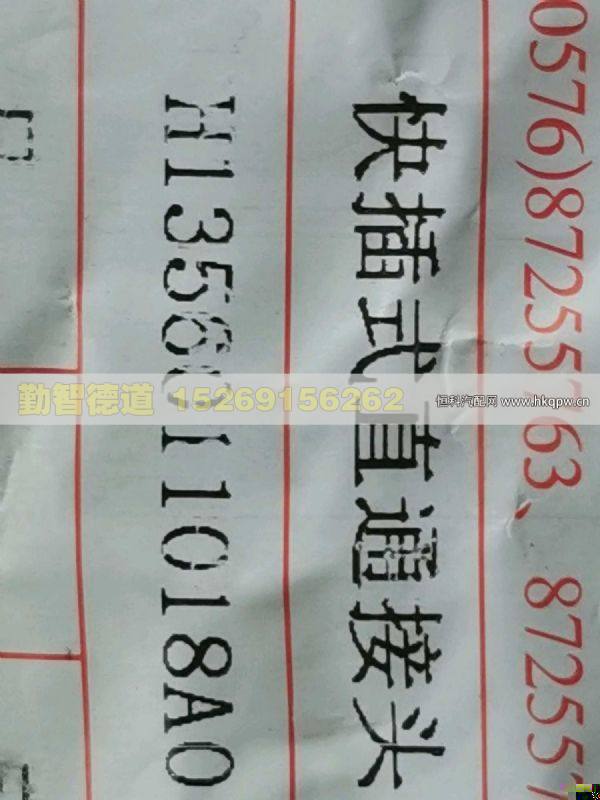 0576)87255763、872557
快插式直通接头
H1356011018A0
勤智德道 15269156262
恒科汽配网 www.hkqpw.cn